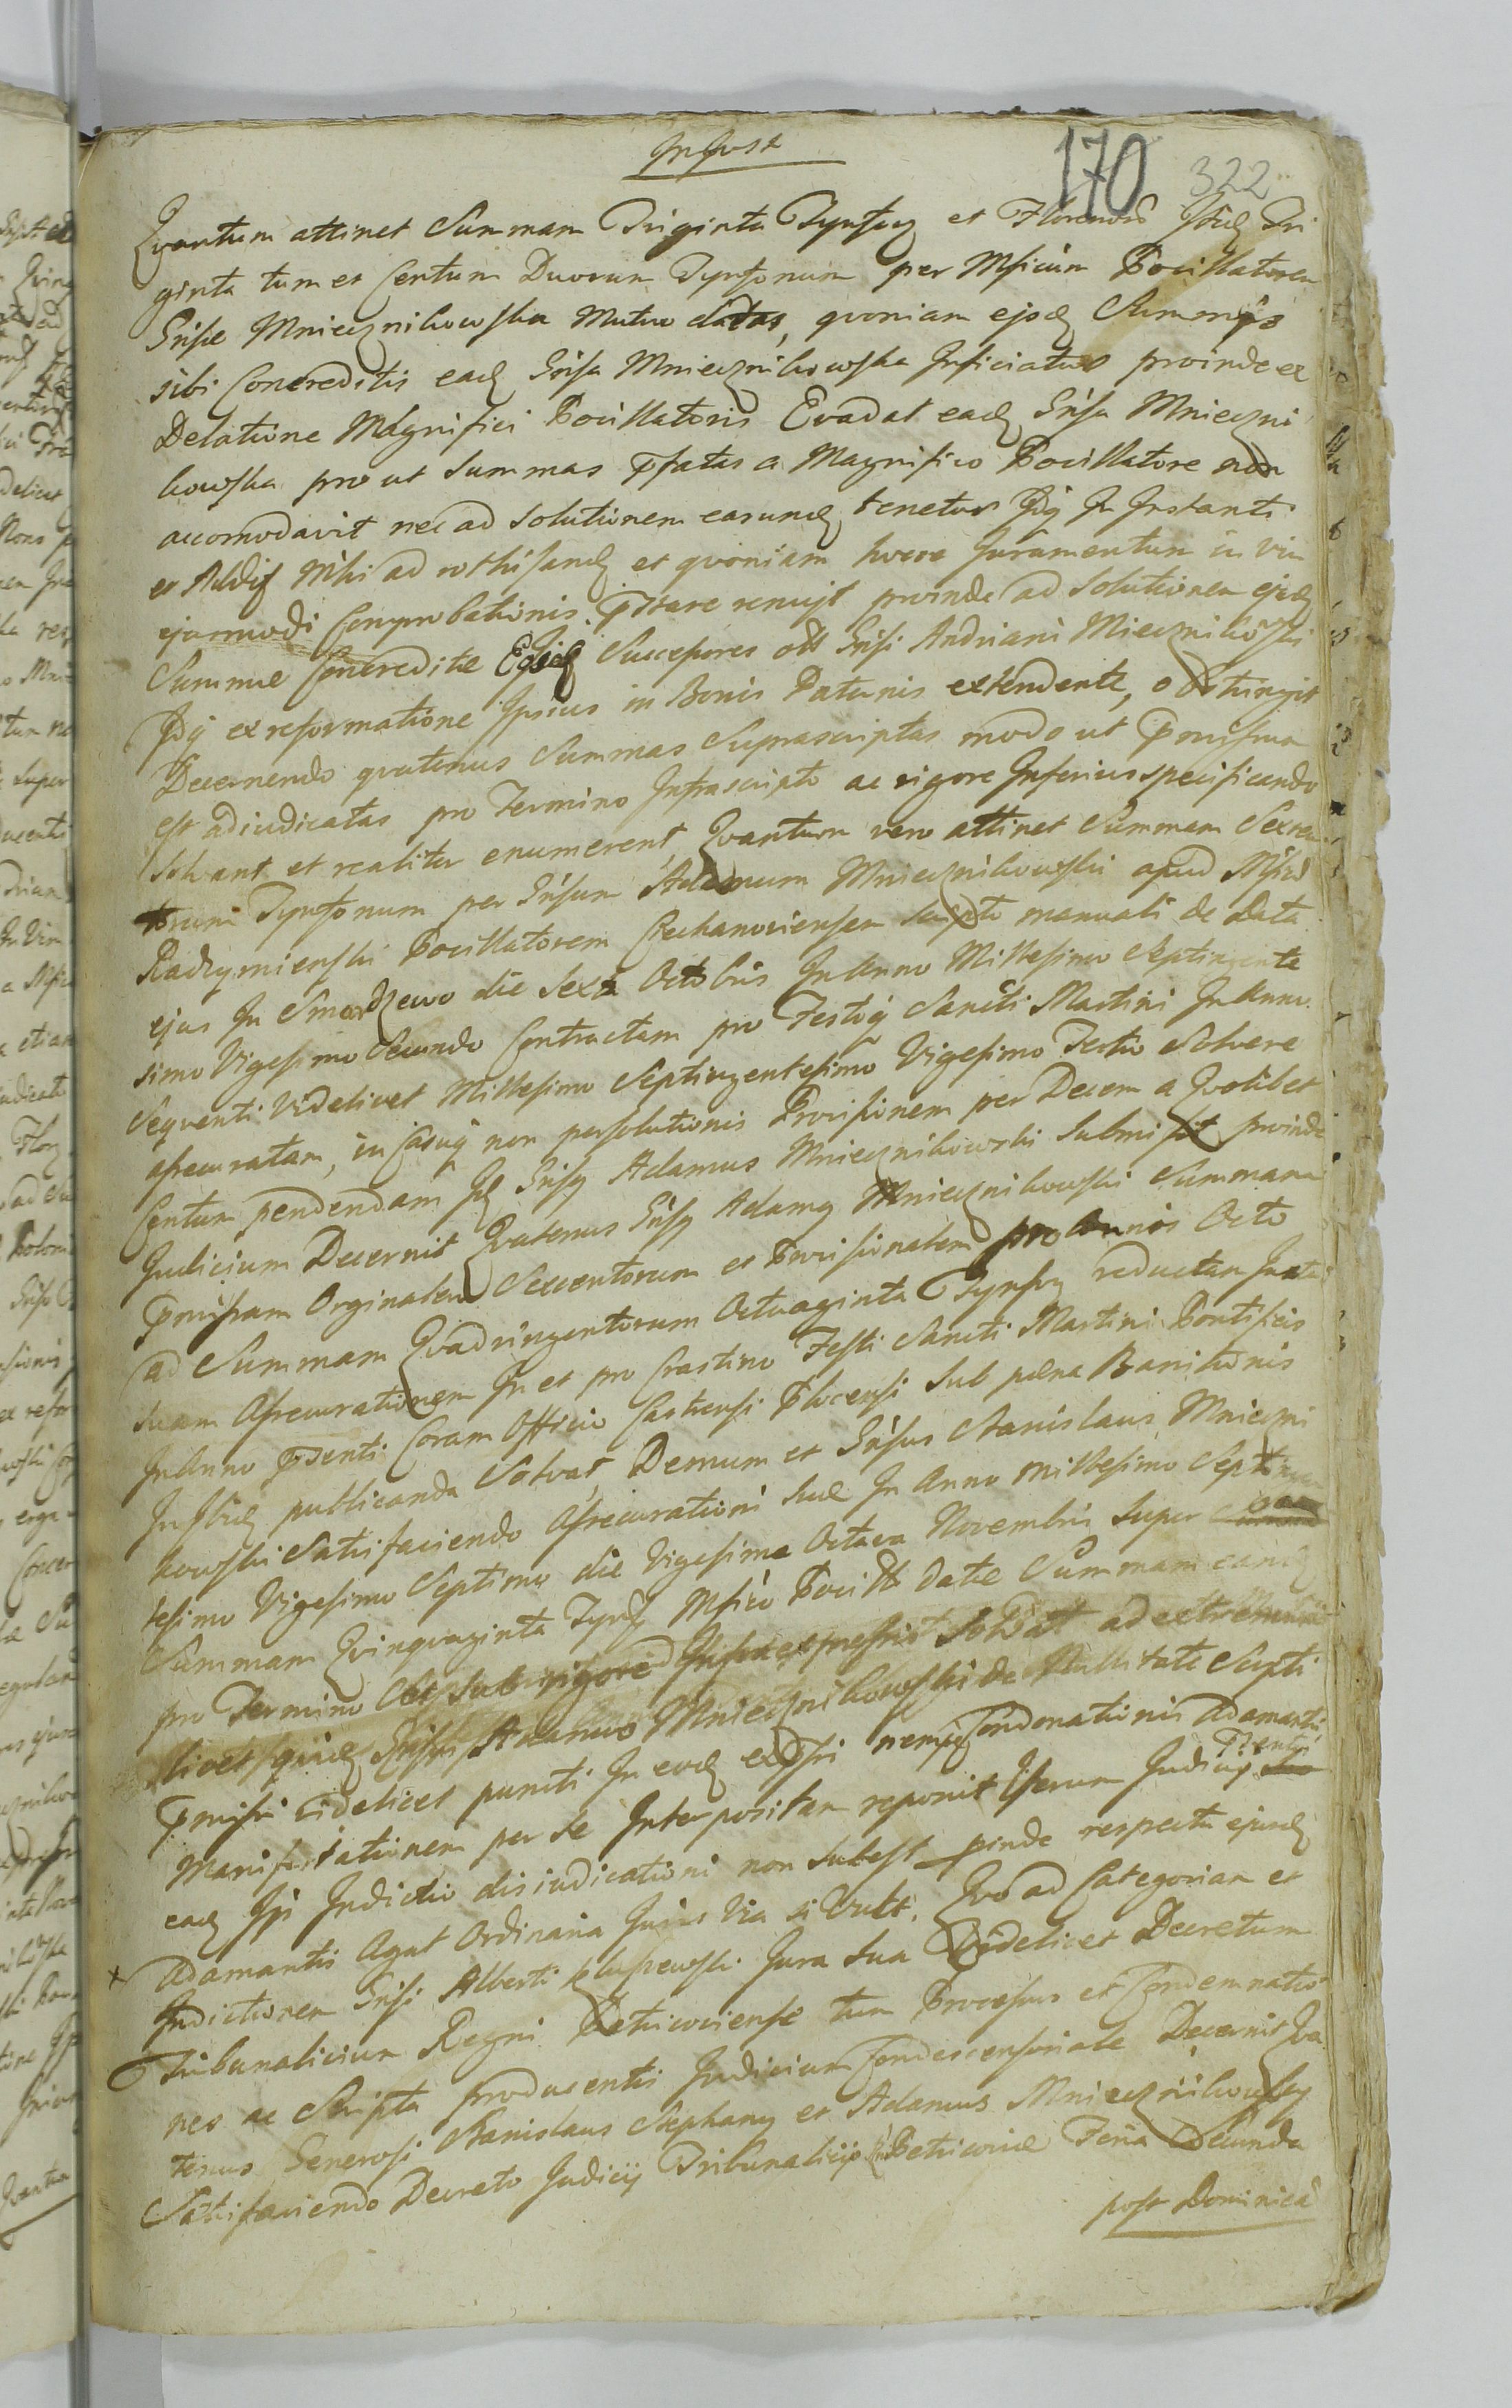 170 322
Qvantum attinet Summam Triginta Tynfoz et Florenorũ Itid Tri
ginta tum et Centum Duorum Tynfonum per Mficum Pocillatorem
Gnsae Mniecznikowska mutuo datas, qvoniam ejsd Summis
sibi Concreditis ead Gnsa Mniecznikowska Inficiatur proinde ex
Delatione Magnifici Pocillatoris Evadat ead Gnsa Mniecni
kowska pro ut Summas pfatas a Magnifico Pocillatore non
accomodavit nec ad Solutionem earund tenetur In Instanti
et qvoniam Juramentum in vim
ejusmodi Comprobationis pstare renuijt proinde ad Solutionem ejsd
Summae Concreditae Successores Gnsi Andriani Mieczniko̅ski
ex reformatione Ipsius in Bonis Paternis extendente, obstringit
Decernendo qvatenus Summas Suprascriptas modo ut pmissum
est adiudicatas pro Termino Infrascripto ac rigore Inferius specificando
Solvant et realiter enumerent, Qvantum vero attinet Summam Sexcen
torum Tynfonum per Gnsum Adamum Mniecznikowski apud Mficũ
Radzymienski Pocillatorem Ciechanoviensem Scripto manuali de Data
ejus In Smardzewo die Sexta Octobris In Anno Millesimo Septingente
simo Vigesimo Secundo Contractam pro Festo Sancti Martini In Anno
Seqventi Videlicet Millesimo Septingentesimo Vigesimo Tertio Solvere
assecuratam, in Casu non persolutionis Provisionem per Decem a Qvolibet
Centum pendendam Gnsus Adamus Mniecznikowski Submisit proinde
Judicium Decernit Qvatenus Gnsus Adamus Mniecznikowski Summam
pmissam Orginalem Sexcentorum et Provisionalem pro Annis Octo
ad Summam Qvadringentorum Octuaginta Tynfoz reductam Juxta
Suam Assecurationem In et pro Crastino Festi Sancti Martini Pontificis
In Anno psenti Coram Officio Castrensi Plocensi Sub paena Banitionis
In Ibid publicanda Solvat, Demum et Gnsus Stanislaus Mnieczni
kowski Satisfaciendo Assecurationi Suae In Anno Millesimo Septingen
tesimo Vigesimo Septimo die Vigesima Octava Novembris Super
Summam Qvinqvaginta Tynfoz Mfico Pocill datae Summam eand
pro Termino et Sub rigore Infra expressis Solvat ad extremum
licet Gnsus Adamus Mniecznikowski de Nullitate Scripti
pmissi Videlicet puncti In eod expssi nempe Condonationis Adamantis
Manifestationem per se Interpositam reponit Iterum Judicio psenti
ead Ipi Judicio disiudicationi non Subest pinde respectu ejusd
Adamantis Agat Ordinaria Juris Via si Vult. Qvo ad Categoriam et
Indictionem Gnsi Alberti Jura Sua Videlicet Decretum
Tribunalicium Regni Petricoviense tum Processus et Condemnatio
nes ac Scripta producentis Judicium Condescensoriale Decernit Qva
tenus Generosi Stanislaus Stephanus et Adamus Mniecznikowscy
Satisfaciendo Decreto Judicij Tribunalicij Petricoviae Feria Secunda
post Dominicã